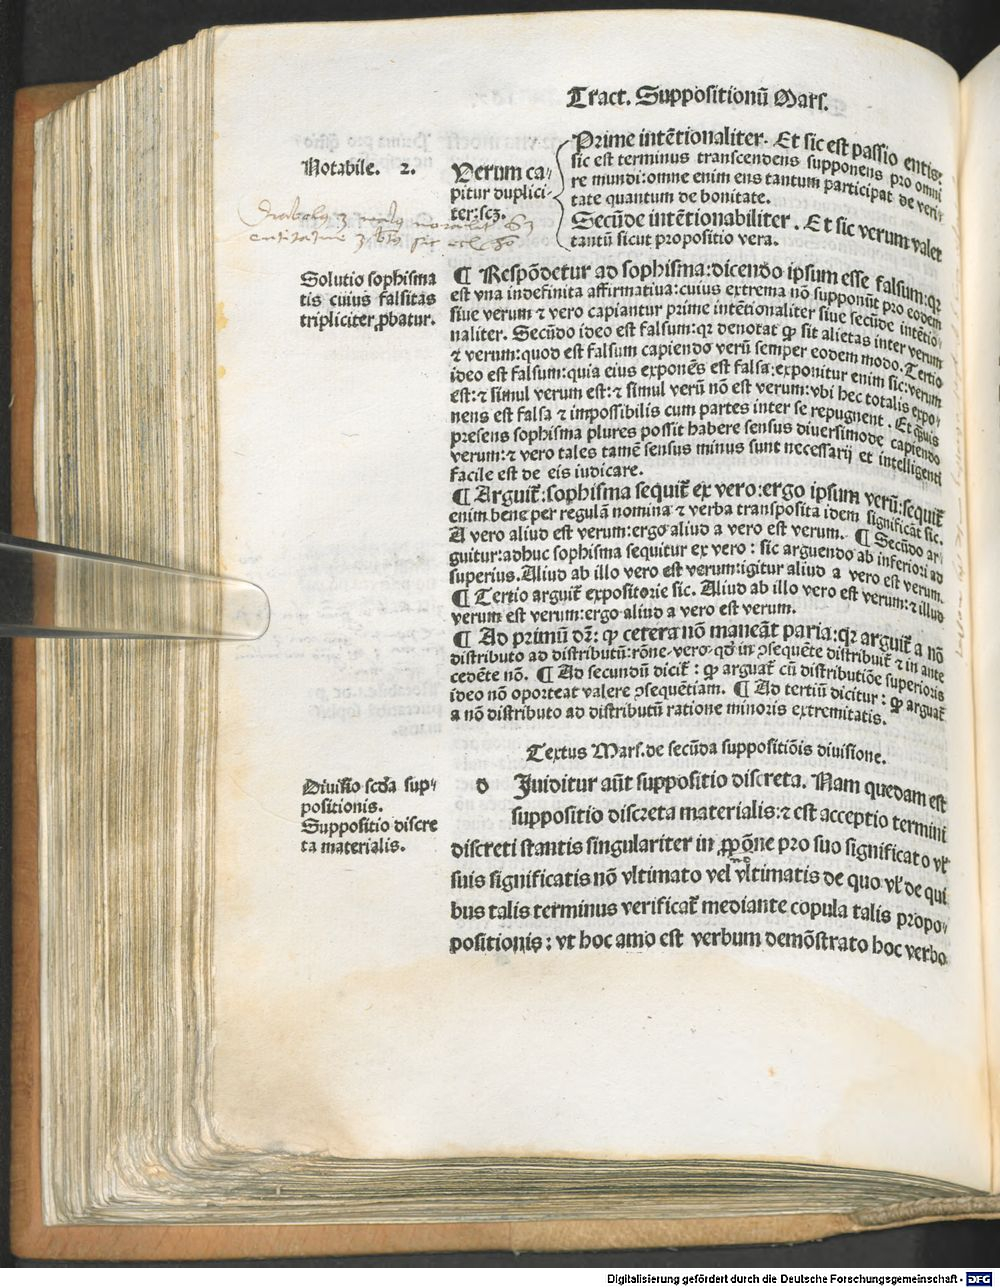 Tract. Suppositionū Mars.
Notabile. 2.
Verum ca⸗
pitur duplici⸗
ter:scz.
Prime intētionaliter. Et sic est passio entis:
sic est terminus transcendens supponens pro omni
re mundi:omne enim ens tantum participat de veri⸗
tate quantum de bonitate.
Secūde intētionabiliter. Et sic verum valet
tantū sicut propositio vera.
Solutio sophisma
tis cuius falsitas
tripliciter ꝓbatur.
¶ Respōdetur ad sophisma:dicendo ipsum esse falsum:qꝛ
est vna indefinita affirmatiua:cuius extrema nō supponūt pro eodem
siue verum ⁊ vero capiantur prime intētionaliter siue secūde intētio⸗
naliter. Secūdo ideo est falsum:qꝛ denotat ꝙ sit alietas inter verum
⁊ verum:quod est falsum capiendo verū semper eodem modo. Tertio
ideo est falsum:quia eius exponēs est falsa:exponitur enim sic:verum
est:⁊ simul verum est:⁊ simul verū nō est verum:vbi hec totalis expo⸗
nens est falsa ⁊ impossibilis cum partes inter se repugnent. Et ꝙ̄uis
presens sophisma plures possit habere sensus diuersimode capiendo
verum:⁊ vero tales tamē sensus minus sunt necessarij et intelligenti
facile est de eis iudicare.
¶ Arguit̄:sophisma sequit̄ ex vero:ergo ipsum verū:sequit̄
enim bene per regulā nomina ⁊ verba transposita idem significāt sic.
A vero aliud est verum:ergo aliud a vero est verum. ¶ Secūdo ar⸗
guitur:adhuc sophisma sequitur ex vero: sic arguendo ab inferiori ad
superius. Aliud ab illo vero est verum:igitur aliud a vero est verum.
¶ Tertio arguit̄ expositorie sic. Aliud ab illo vero est verum:⁊ illud
verum est verum:ergo aliud a vero est verum.
¶ Ad primū dr̄: ꝙ cetera nō maneāt paria:qꝛ arguit̄ a nō
distributo ad distributū:rōne⸗vero⸗qd̄ in ꝯsequēte distribuit̄ ⁊ in ante
cedēte nō. ¶ Ad secundū dicit̄: ꝙ arguat̄ cū distributiōe superioris
ideo nō oporteat valere ꝯsequētiam. ¶ Ad tertiū dicitur: ꝙ arguat̄
a nō distributo ad distributū ratione minoris extremitatis.
Textus Mars. de secūda suppositiōis diuisione.
Diuisio scd̄a sup⸗
positionis.
Suppositio discre
ta materialis.
d Iuiditur aūt suppositio discreta. Nam quedam est
suppositio discreta materialis:⁊ est acceptio termini
discreti stantis singulariter in ꝓpōne pro suo significato vl̄
suis significatis nō vltimato vel vltimatis de quo vl̄ de qui
bus talis terminus verificat̄ mediante copula talis propo⸗
positionis: vt hoc amo est verbum demōstrato hoc verbo
Digitalisierung gefördert durch die Deutsche Forschungsgemeinschaft - DFG